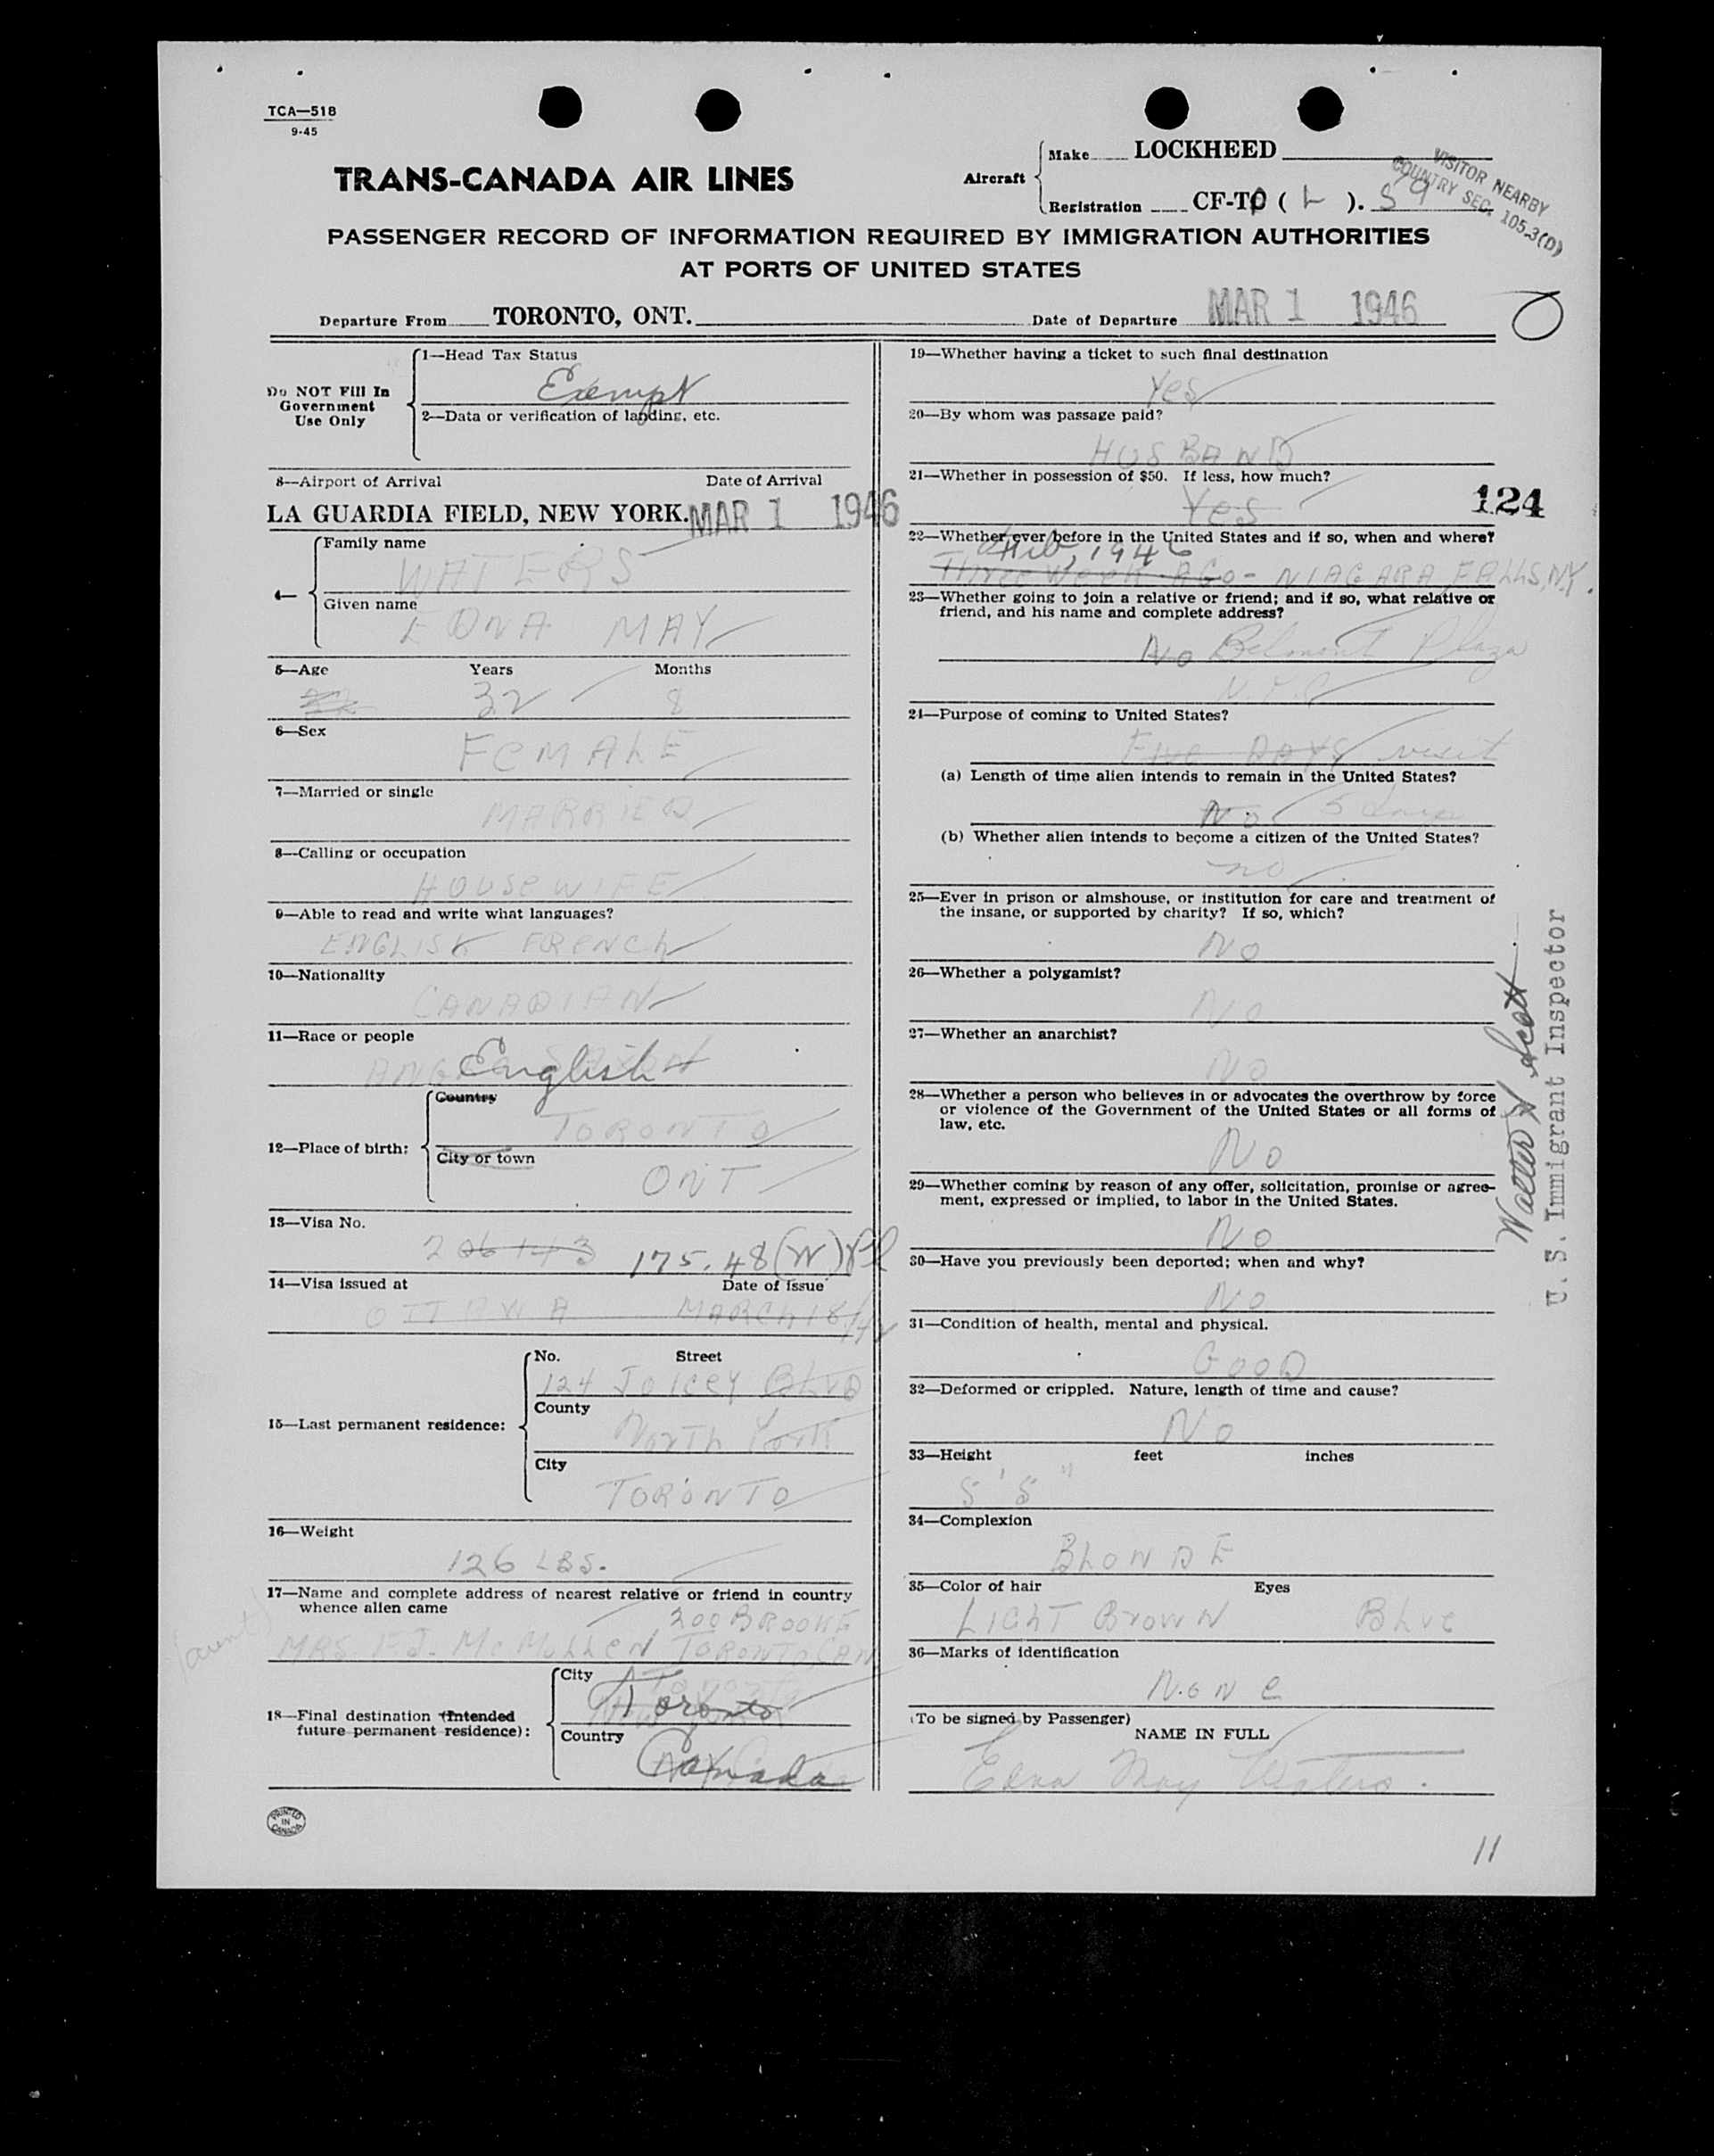 TCA—518
9-45
TRANS-CANADA AIR LINES
Aircraft
Make LOCKHEED
Registration CF-TC ( L ). 59
VISITOR NEARBY
COUNTRY SEC. 105.3(D)
PASSENGER RECORD OF INFORMATION REQUIRED BY IMMIGRATION AUTHORITIES
AT PORTS OF UNITED STATES
Departure From TORONTO, ONT. Date of Departure MAR 1 1946
Do NOT Fill In
Government
Use Only
1—Head Tax Status
Exempt
2—Data or verification of landing, etc.
3—Airport of Arrival Date of Arrival
LA GUARDIA FIELD, NEW YORK. MAR 1 1946
4—
Family name
WATERS
Given name
EDNA MAY
5—Age Years Months
32 8
6—Sex
FEMALE
7—Married or single
MARRIED
8—Calling or occupation
HOUSEWIFE
9—Able to read and write what languages?
ENGLISH FRENCH
10—Nationality
CANADIAN
11—Race or people
English
12—Place of birth:
Country
TORONTO
City or town
ONT
13—Visa No.
206143 175.48(W)
14—Visa issued at Date of issue
OTTAWA MARCH 18/42
15—Last permanent residence:
No. Street
124 Joicey BLVD
County
North York
City
TORONTO
16—Weight
126 LBS.
17—Name and complete address of nearest relative or friend in country
whence alien came
200 BROOKE
(aunt) MRS F.J. McMULLEN TORONTO, CAN
18—Final destination (Intended
future permanent residence):
City
Toronto
Country
Canada
PRINTED
IN
CANADA
19—Whether having a ticket to such final destination
Yes
20—By whom was passage paid?
HUSBAND
21—Whether in possession of $50. If less, how much?
Yes
124
22—Whether ever before in the United States and if so, when and where?
Feb, 1946
Three Week AGO - NIAGARA FALLS, N.Y.
23—Whether going to join a relative or friend; and if so, what relative or
friend, and his name and complete address?
No Belmont Plaza
N.Y.C
24—Purpose of coming to United States?
Five DAYS visit
(a) Length of time alien intends to remain in the United States?
No 5 days
(b) Whether alien intends to become a citizen of the United States?
no
25—Ever in prison or almshouse, or institution for care and treatment of
the insane, or supported by charity? If so, which?
No
26—Whether a polygamist?
No
27—Whether an anarchist?
No
28—Whether a person who believes in or advocates the overthrow by force
or violence of the Government of the United States or all forms of
law, etc.
No
29—Whether coming by reason of any offer, solicitation, promise or agree-
ment, expressed or implied, to labor in the United States.
No
30—Have you previously been deported; when and why?
No
31—Condition of health, mental and physical.
GOOD
32—Deformed or crippled. Nature, length of time and cause?
No
33—Height feet inches
5' 5"
34—Complexion
BLONDE
35—Color of hair Eyes
LIGHT BROWN BLUE
36—Marks of identification
None
(To be signed by Passenger)
NAME IN FULL
Edna May Waters.
Walter W Scott
U. S. Immigrant Inspector
11